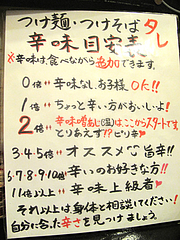 つけ麺・つけそばタレ
辛味目安表
※辛味は食べながら追加できます。
0倍 辛味なし、お子様OK!!
1倍 ちょっと辛い方がおいしいよ!
2倍 辛味噌あじ(温)はここからスタートです。
とりあえず??ピリ辛♥
3・4・5倍 オススメ 旨辛!!
6・7・8・9・10倍 辛いのお好きな方!!
11倍以上 辛味上級者
それ以上は身体と相談してください!
自分に合った辛さを見つけましょう。